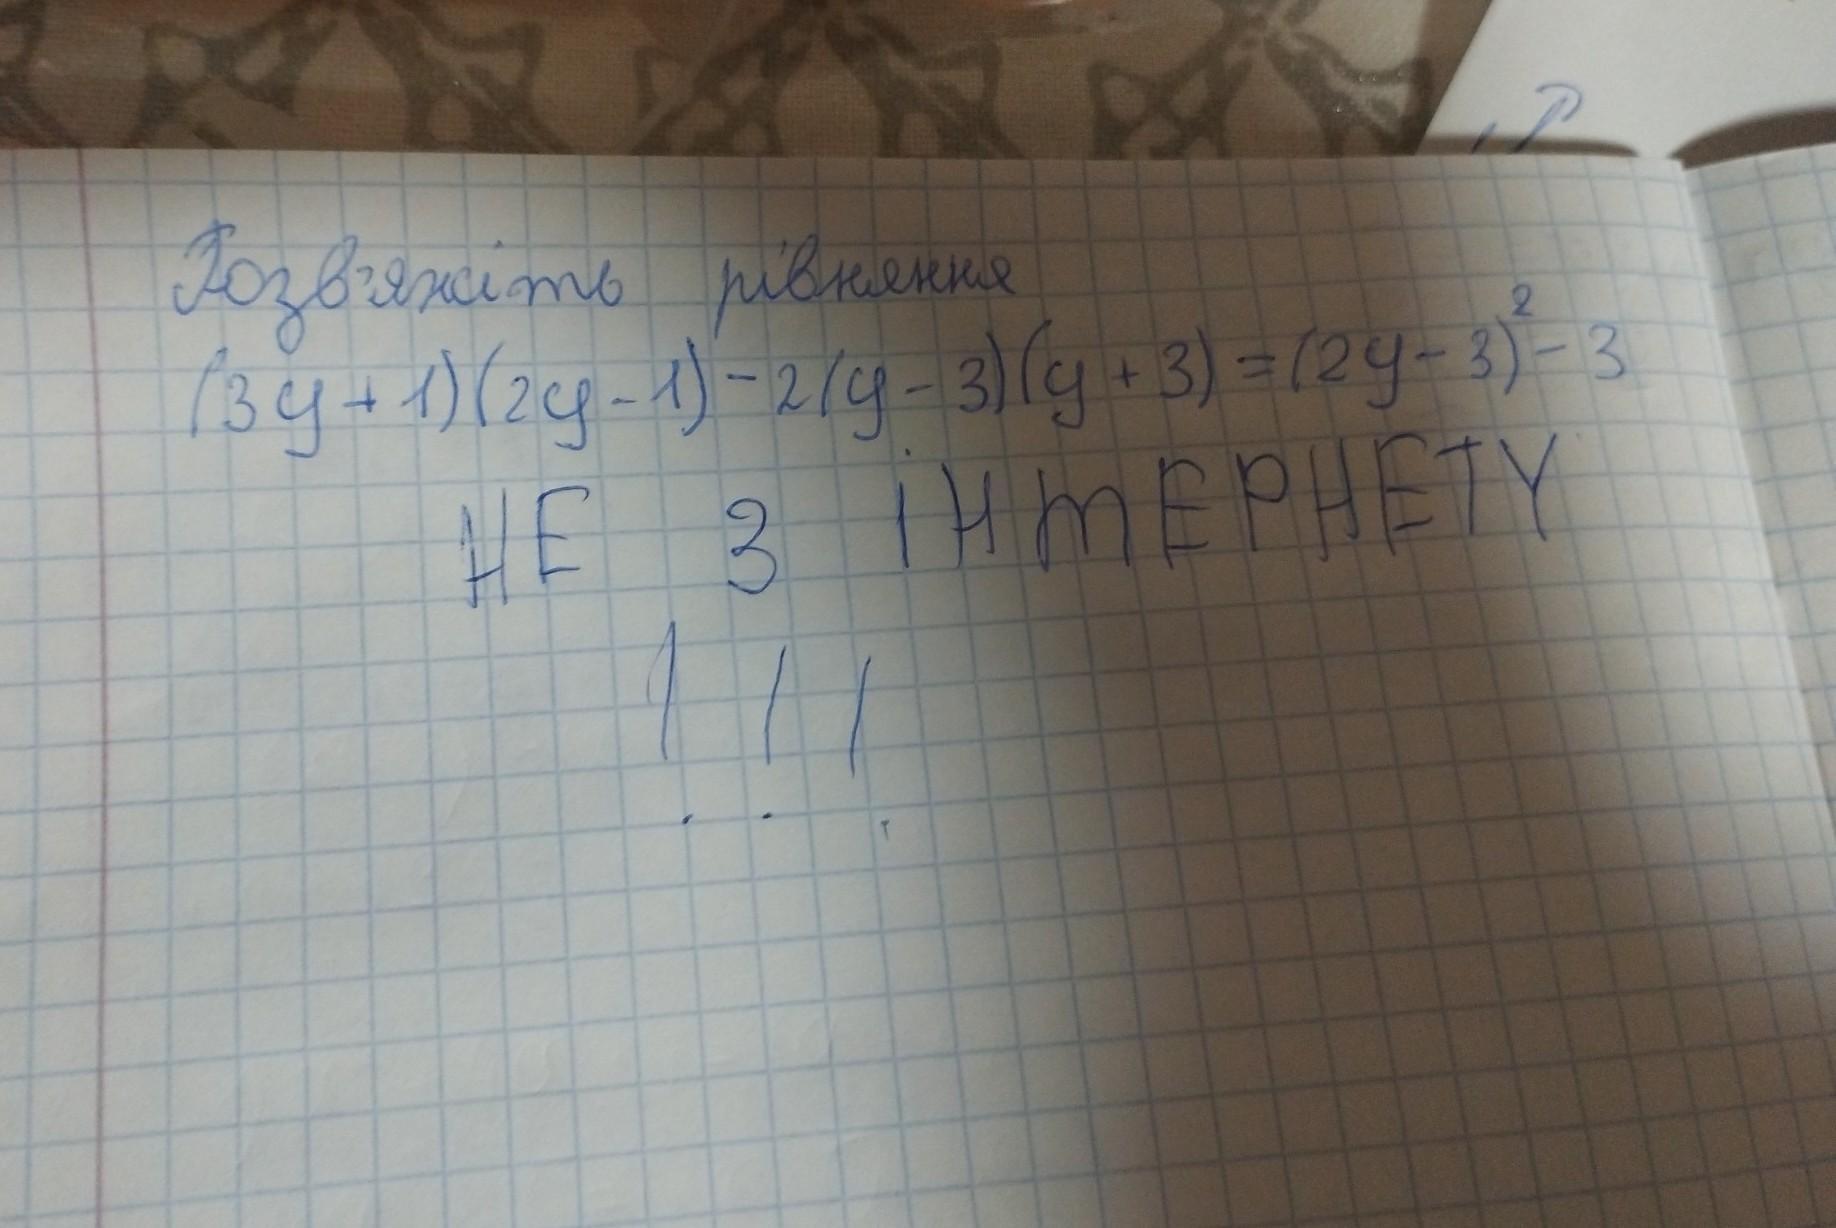 Розв'яжіть рівняння
(3y+1)(2y-1)-2(y-3)(y+3)=(2y-3)²-3
НЕ З ІНТЕРНЕТУ
!!!